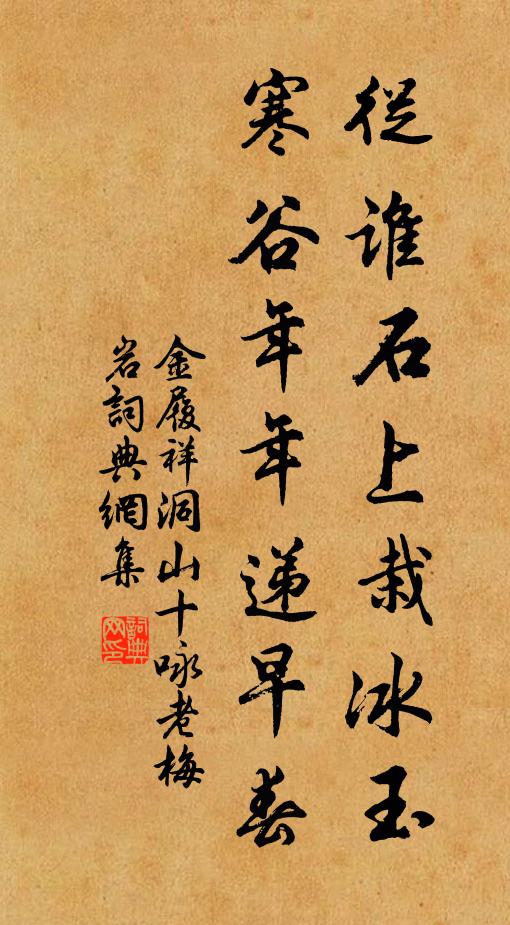 從誰石上栽冰玉
寒谷年年递早春
金履祥洞山十咏老梅
岩詞典網集
詞典网印